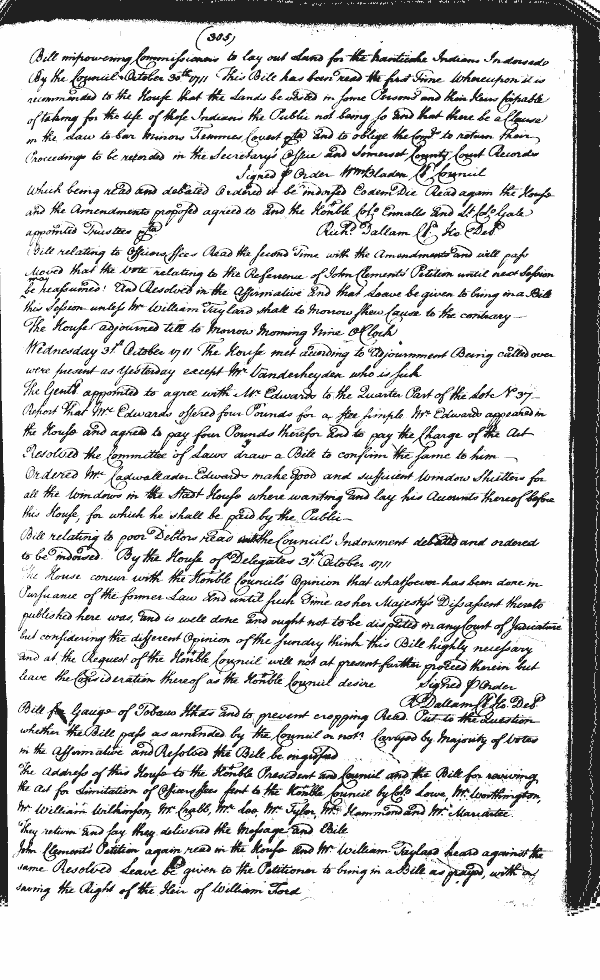 (305)
Bill impowering Commissioners to lay out Land for the Nanticoke Indians Indorsed
By the Council October 30th 1711 This Bill has been read the first Time Whereupon it is
recommended to the House that the Lands be vested in some Persons and their Heirs Capable
of taking for the use of those Indians the Public not being so And that there be a Clause
in the Law to bar Minors Femmes Covert &ca And to oblige the Comrs to return their
Proceedings to be recorded in the Secretary's Office and Somerset County Court Records
Signed p Order Wm Bladen Cl Council
Which being read and debated Ordered it be indorsed Eodem Die Read again the House
and the Amendments proposed agreed to and the Honble Colo Ennalls and Lt Colo Gale
appointed Trustees &ca Richd Dallam Cl Ho Dels
Bill relating to Officers ffees Read the Second Time with the Amendments and will pass
Moved that the Vote relating to the Reference of John Clements Petition until next Session
may be reassumed And Resolved in the Affirmative And that Leave be given to bring in a Bill
this Session unless Mr William Taylard shall to Morrow shew Cause to the contrary
The House adjourned till to Morrow Morning Nine O'Clock
Wednesday 31st October 1711 The House met according to Adjournment Being called over
were present as Yesterday except Mr Vanderheyden who is sick
The Gentn appointed to agree with Mr Edwards to the Quarter Part of the Lot No 37
Report that Mr Edwards offered four Pounds for a ffee simple Mr Edwards appeared in
the House and agreed to pay four Pounds therefor And to pay the Charge of the Act
Resolved the Committee of Laws draw a Bill to confirm the same to him
Ordered Mr Cadwallader Edwards make good and sufficient Window Shutters for
all the Windows in the Stadt House where wanting and lay his Accounts thereof before
this House, for which he shall be paid by the Public
Bill relating to poor Debtors read with the Council's Indorsment debated and ordered
to be indorsed By the House of Delegates 31st October 1711
The House concur with the Honble Councils Opinion that whatsoever has been done in
Pursuance of the former Law And until such Time as her Majestys Dissassent thereto
published here was, and is well done and ought not to be disputed in any Court of Judicature
but considering the different Opinion of the Sundry think this Bill highly necessary
and at the Request of the Honble Council will not at present further proceed therein but
leave the Consideration thereof as the Honble Council desire Signed p Order
R Dallam Cl Ho Dels
Bill for Gauge of Tobacco Hhds and to prevent cropping Read Put to the Question
whether the Bill pass as amended by the Council or not? Carryed by Majority of Votes
in the Affirmative and Resolved the Bill be ingrossed
The Address of this House to the Honble President and Council and the Bill for reviving,
the Act for Limitation of Officers ffees sent to the Honble Council by Colo Lowe, Mr Worthington,
Mr William Wilkinson, Mr Crabb, Mr Lee Mr Tyler, Mr Hammond and Mr Mariartee
They return and say they delivered the Message and Bill
John Clements Petition again read in the House and Mr William Taylard heard against the
same Resolved Leave be given to the Petitioner to bring in a Bill as prayed, with a
saving the Right of the Heir of William Ford